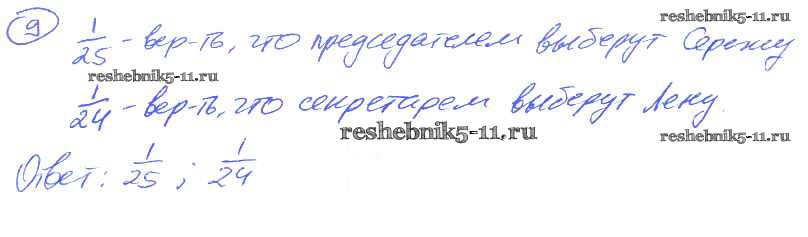 reshebnik5-11.ru
9 1/25 - вер-ть, что председателем выберут Сережу
reshebnik5-11.ru
1/24 - вер-ть, что секретарем выберут Лену.
reshebnik5-11.ru reshebnik5-11.ru
Ответ: 1/25 ; 1/24